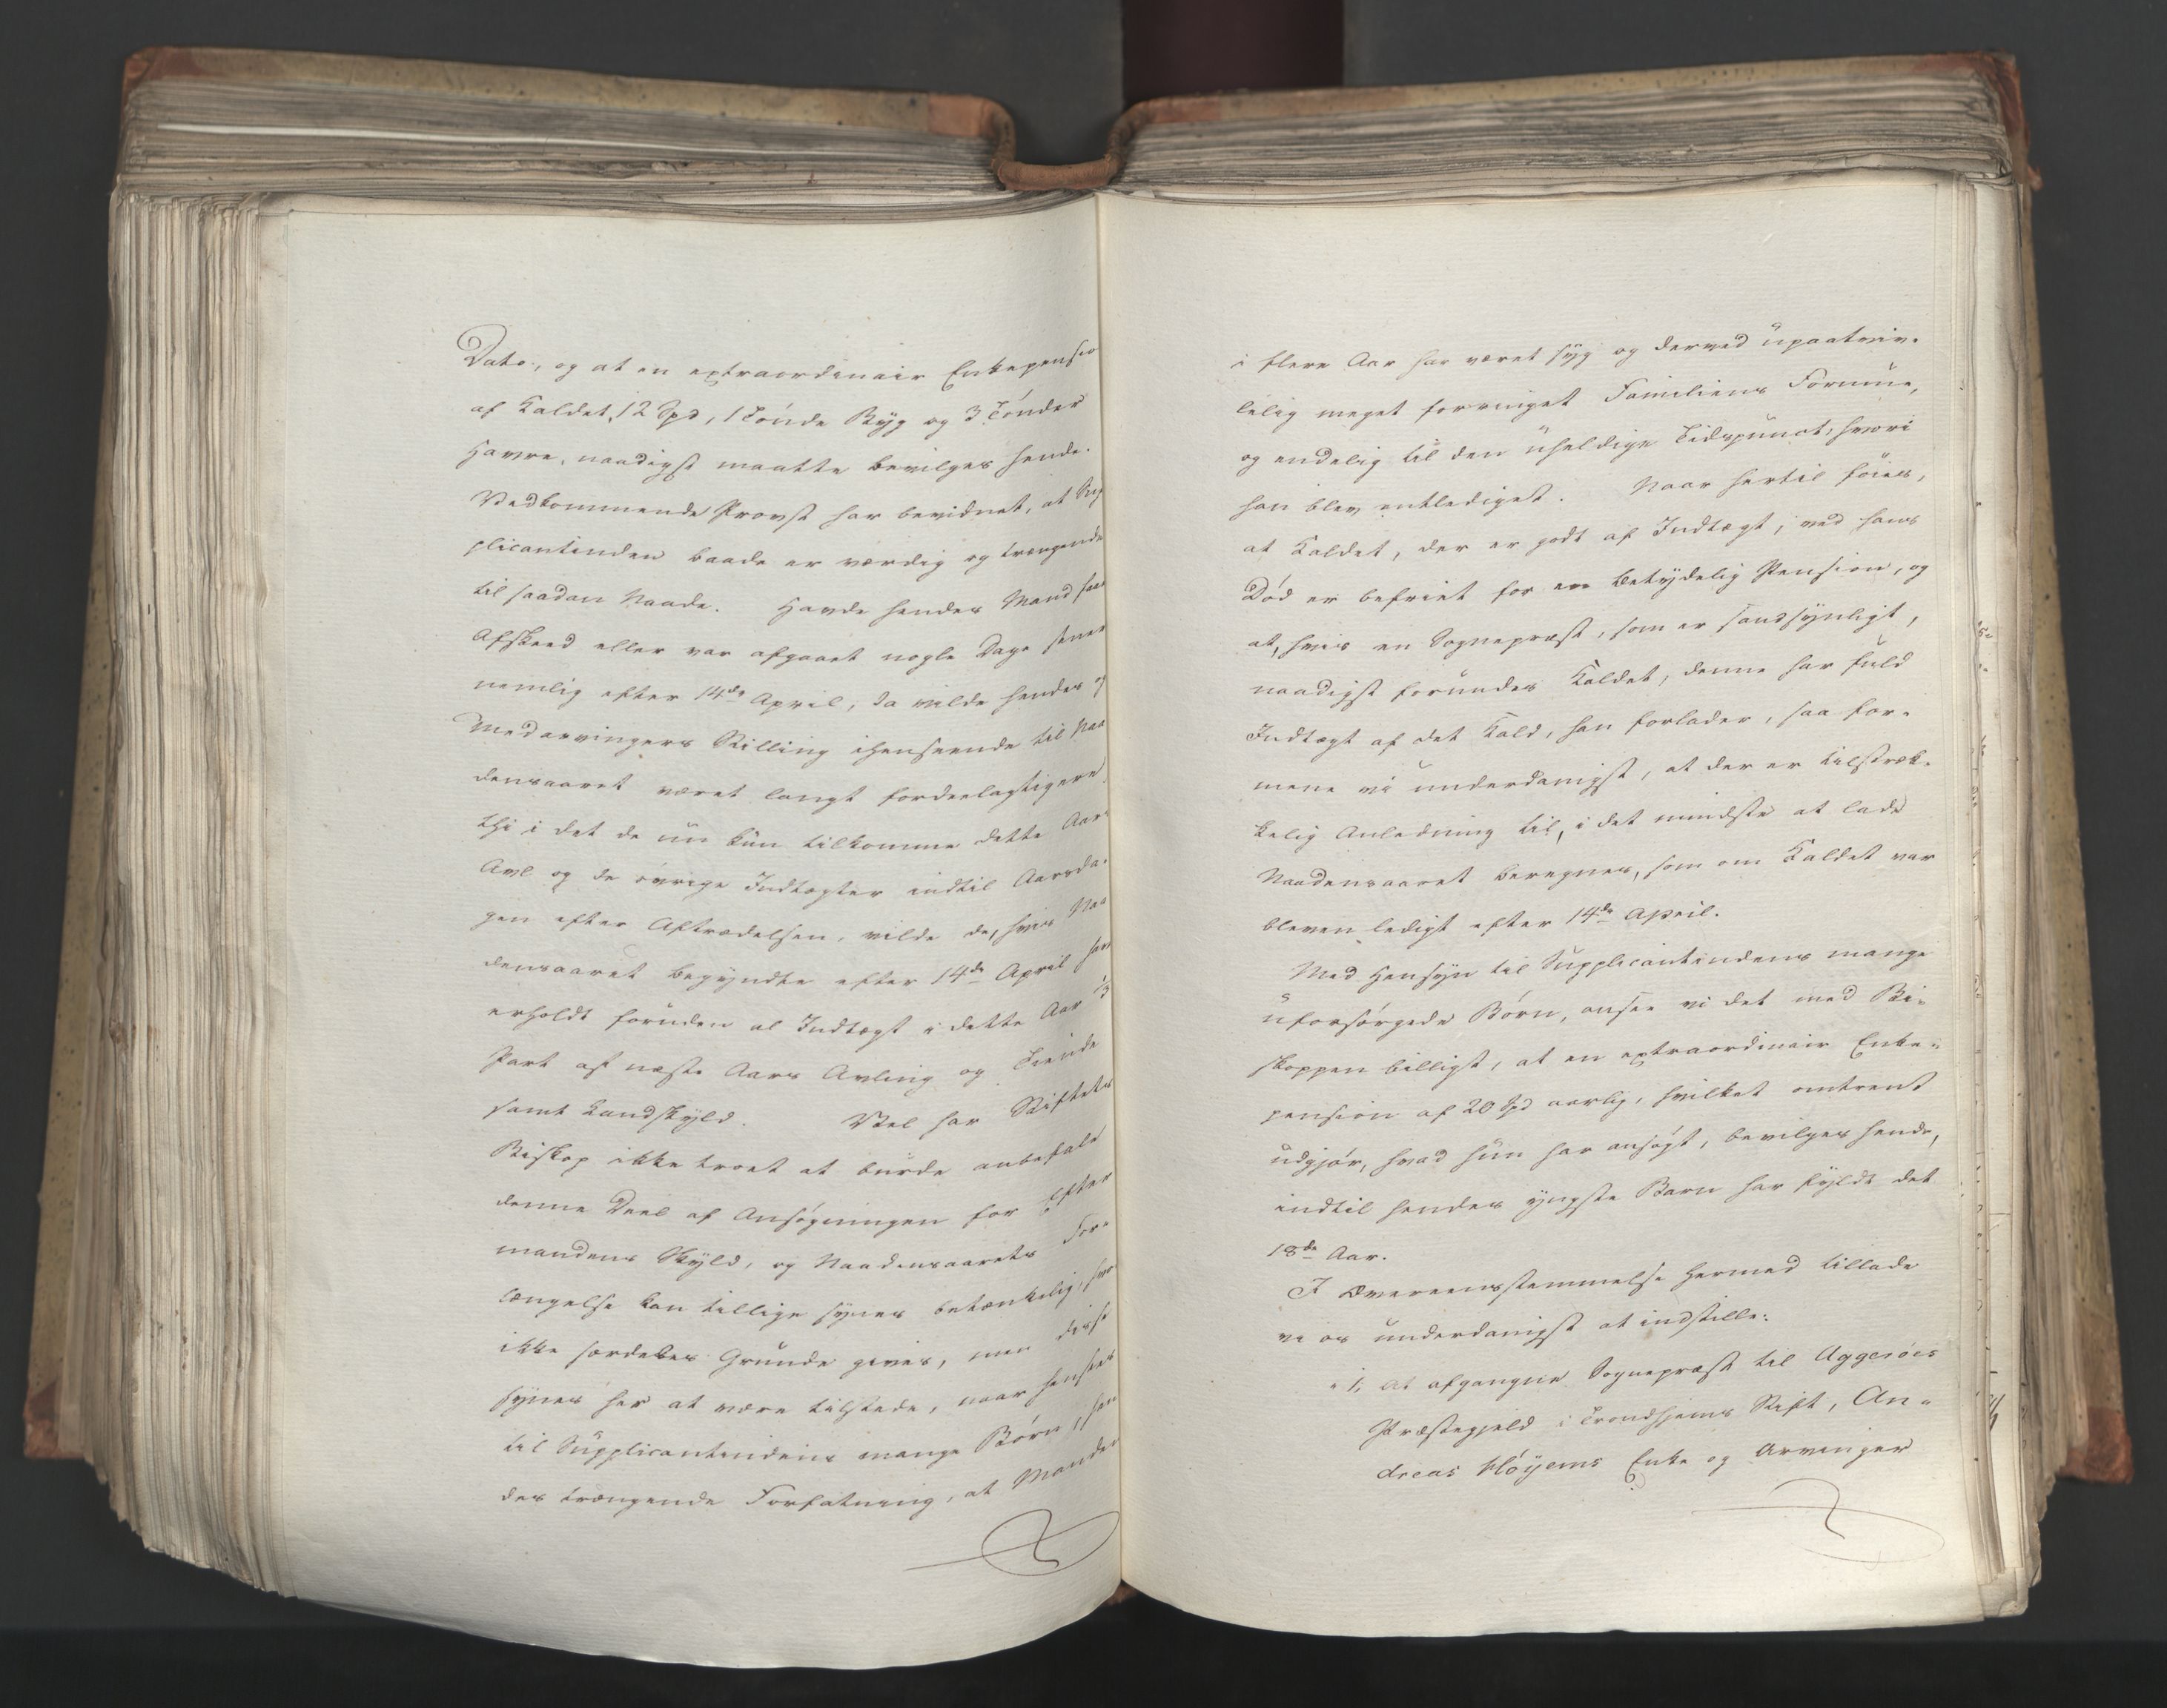 Dato, og at en extraordinair Enkepensio
af Kaldet, 12 Spd, 1 Tønde Byg og 3 Tønder
Havre, naadigst maatte bevilges hende.
Vedkommende Provst har bevidnet, at Sup
plicantinden baade er værdig og trængende
til saadan Naade. Havde hendes Mand faaet
Afskeed eller var afgaaet nogle Dage sener
nemlig efter 14de April, da vilde hendes og
Medarvingers Stilling ihenseende til Naa
densaaret været langt fordeelagtigere,
thi i det de nu kun tilkomme dette Aars
Avl og de øvrige Indtægter indtil Aarsda-
gen efter Aftrædelsen, vilde de, hvis Naa
densaaret begyndte efter 14de April have
erholdt foruden al Indtægt i dette Aar 1/3
Part af næste Aars Avling og Tiende
samt Landskyld. Vel har Stiftets
Biskop ikke troet at burde anbefale
denne Deel af Ansøgningen for Efter
mandens Skyld, og Naadensaarets For-
længelse kan tillige synes betænkelig, hvor
ikke særdeles Grunde gives, men disse
synes her at være tilstede, naar henses
til Supplicantindens mange Børn, hen
des trængende Forfatning, at Manden
i flere Aar har været syg og derved upaatviv-
lelig meget forringet Familiens Formue,
og endelig til den uheldige Tidspunct, hvori
han blev entlediget. Naar hertil føies,
at Kaldet, der er godt af Indtægt, ved hans
Død er befriet for en betydelig Pension, og
at, hvis en Sognepræst, som er sandsynligt,
naadigst forundes Kaldet, denne har fuld
Indtægt af det Kald, han forlader, saa for-
mene vi underdanigst, at der er tilstræk-
kelig Anledning til, i det mindste at lade
Naadensaaret beregnes, som om Kaldet var
bleven ledigt efter 14de April.
Med Hensyn til Supplicantindens mange
uforsørgede Børn, ansee vi det med Bi-
skoppen billigt, at en extraordinair Enke-
pension af 20 Spd aarlig, hvilket omtrent
udgjør, hvad hun har ansøgt, bevilges hende,
indtil hendes yngste Barn har fyldt det
18de Aar.
I Overeensstemmelse hermed tillade
vi os underdanigst at indstille:
1, At afgangne Sognepræst til Aggerøes
Præstegjeld i Trondhjems Stift, An-
dreas Høyems Enke og Arvinger